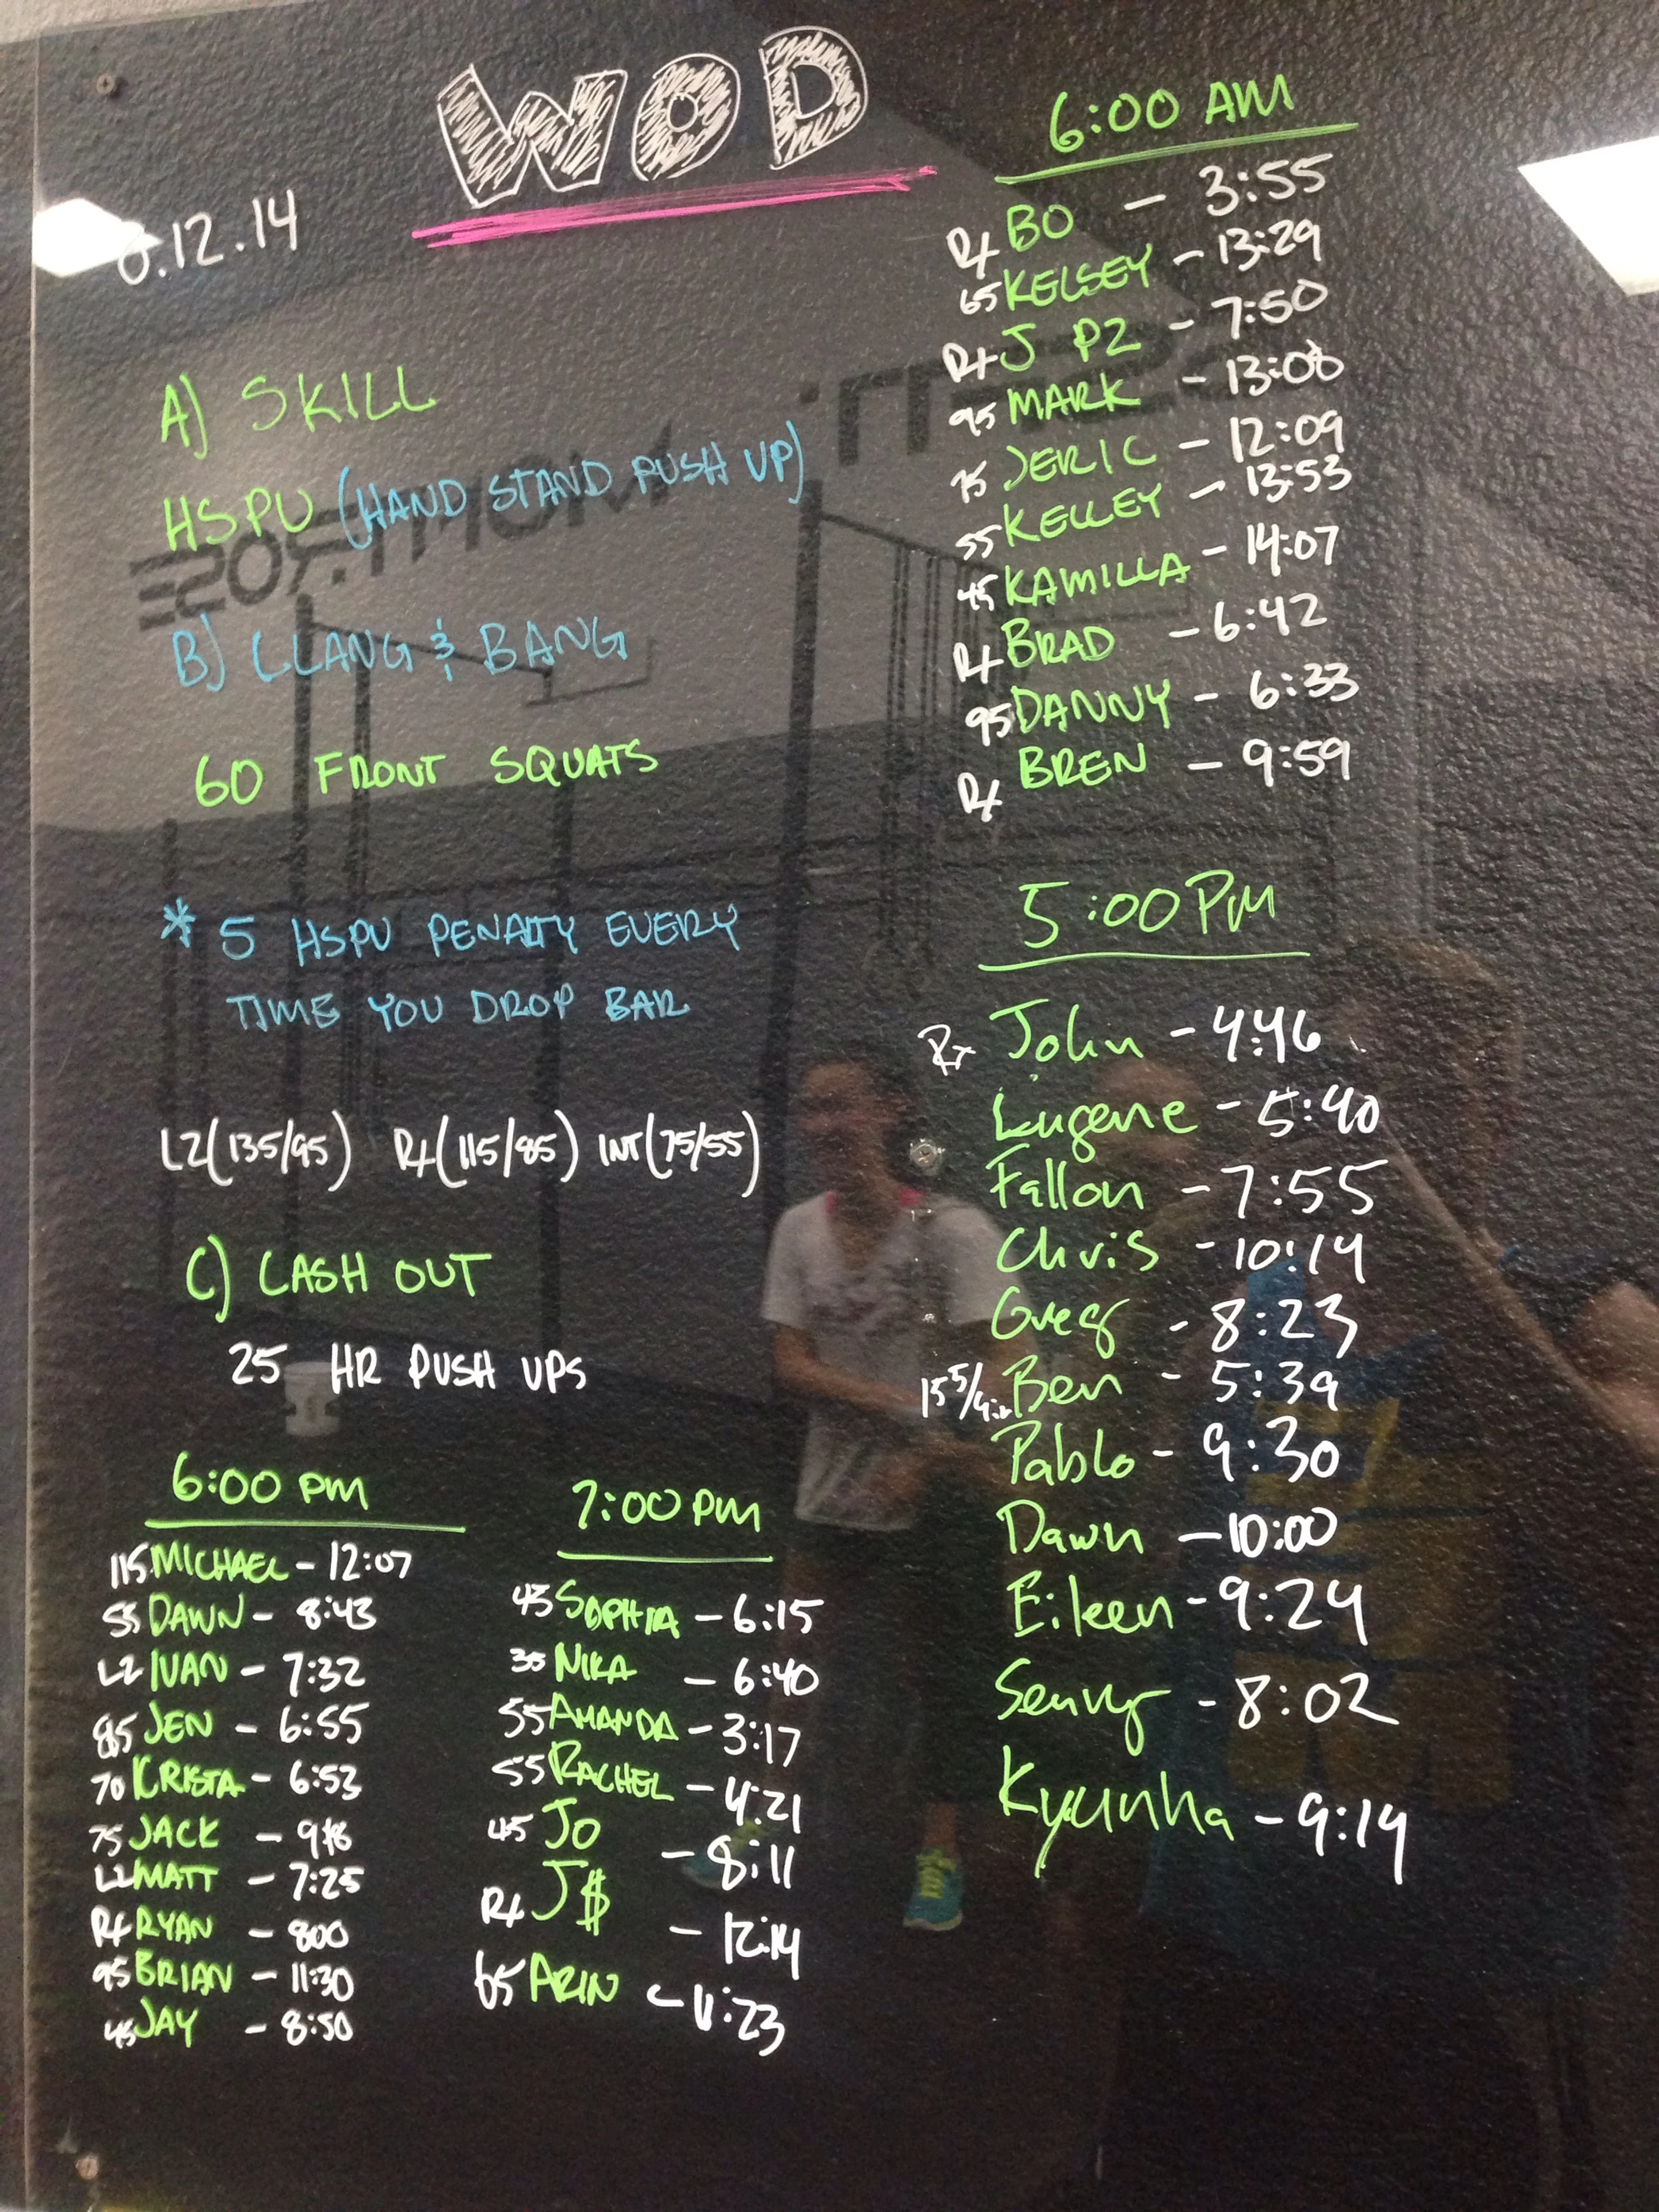 WOD
.12.14
A) SKILL
HSPU (HAND STAND PUSH UP)
B) CLANG & BANG
60 FRONT SQUATS
* 5 HSPU PENALTY EVERY
TIME YOU DROP BAR
L2(135/95) RX(115/85) INT(75/55)
C) CASH OUT
25 HR PUSH UPS
6:00 PM
115 MICHAEL - 12:07
55 DAWN - 8:43
L2 IVAN - 7:32
85 JEN - 6:55
70 KRISTA - 6:53
75 JACK -
L2 MATT - 7:25
RX RYAN - 800
95 BRIAN - 11:30
45 JAY - 8:50
7:00 PM
45 SOPHIA - 6:15
35 NIKA - 6:40
55 AMANDA - 3:17
55 RACHEL - 4:21
45 JO - 8:11
RX J$ - 12:14
65 ARIN - 11:23
6:00 AM
RX BO - 3:55
65 KELSEY - 13:29
RX J PZ - 7:50
95 MARK - 13:08
75 JERIC - 12:09
55 KELLEY - 13:53
45 KAMILLA - 14:07
RX BRAD - 6:42
95 DANNY - 6:33
RX BREN - 9:59
5:00 PM
Rx John - 4:46
Eugene - 5:40
Fallon - 7:55
Chris - 10:14
Greg - 8:23
Ben - 5:39
Pablo - 9:30
Dawn - 10:00
Eileen - 9:24
- 8:02
Kyunha - 9:14